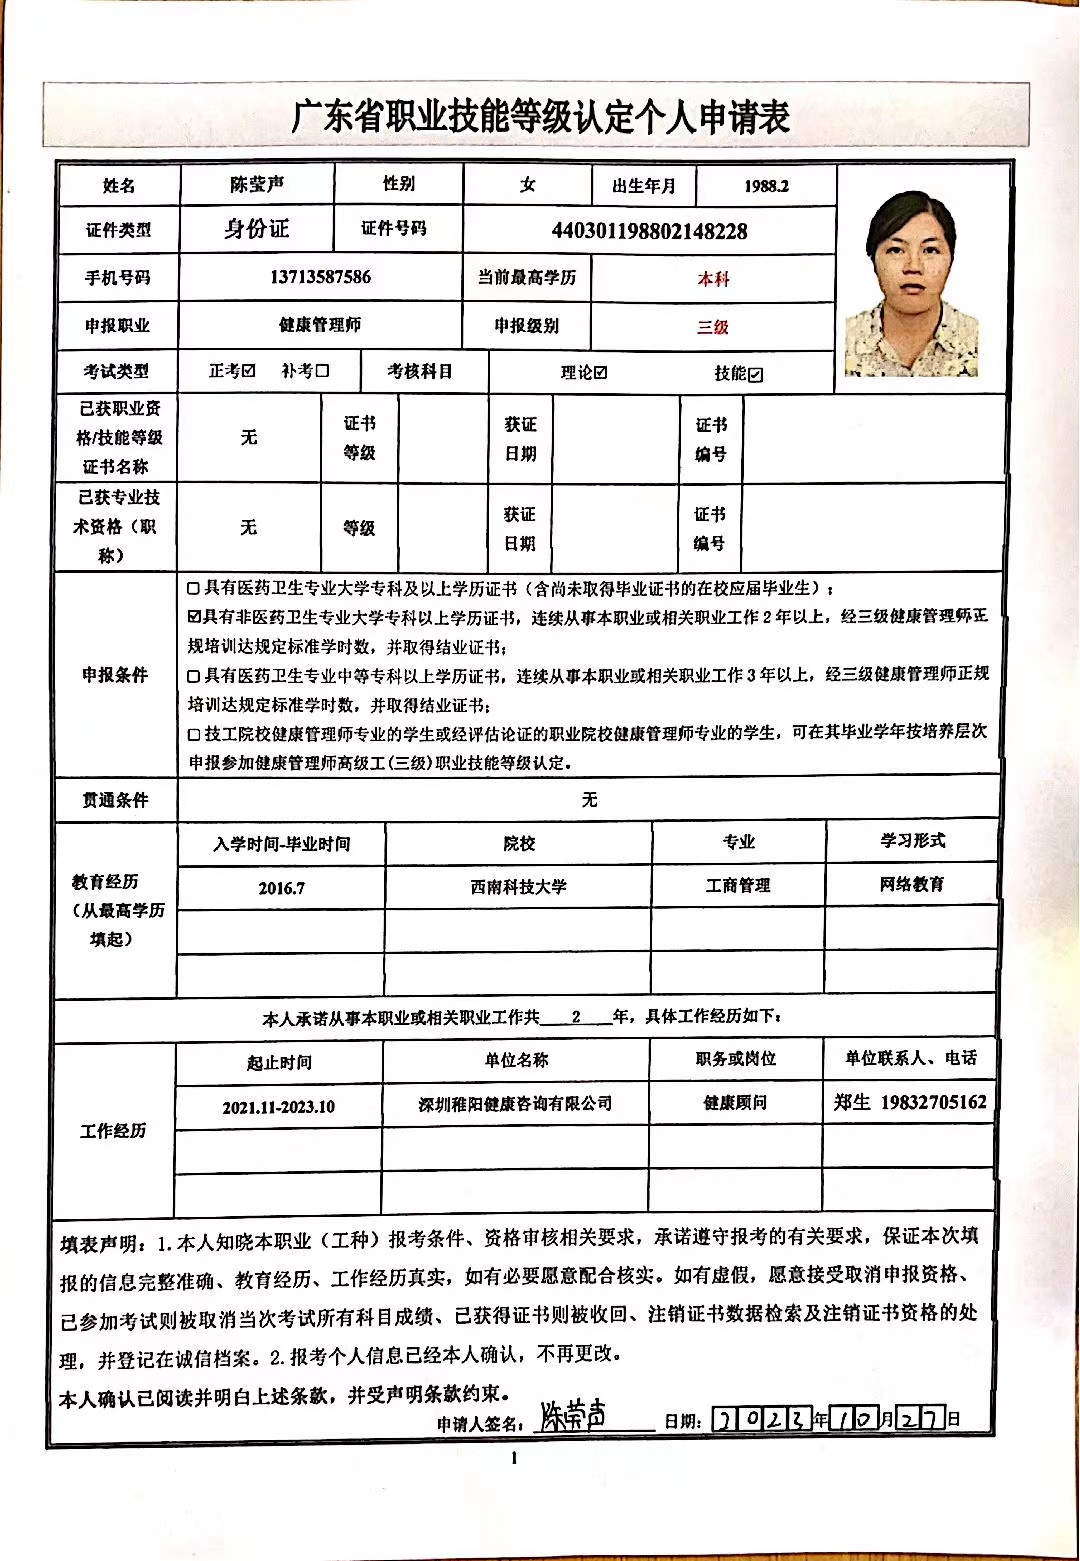 广东省职业技能等级认定个人申请表
姓名 陈莹声 性别 女 出生年月 1988.2
证件类型 身份证 证件号码 440301198802148228
手机号码 13713587586 当前最高学历 本科
申报职业 健康管理师 申报级别 三级
考试类型 正考☑ 补考☐ 考核科目 理论☑ 技能☑
已获职业资格/技能等级证书名称 无 证书等级 获证日期 证书编号
已获专业技术资格（职称） 无 等级 获证日期 证书编号
申报条件
☐具有医药卫生专业大学专科及以上学历证书（含尚未取得毕业证书的在校应届毕业生）；
☑具有非医药卫生专业大学专科以上学历证书，连续从事本职业或相关职业工作2年以上，经三级健康管理师正
规培训达规定标准学时数，并取得结业证书；
☐具有医药卫生专业中等专科以上学历证书，连续从事本职业或相关职业工作3年以上，经三级健康管理师正规
培训达规定标准学时数，并取得结业证书；
☐技工院校健康管理师专业的学生或经评估论证的职业院校健康管理师专业的学生，可在其毕业学年按培养层次
申报参加健康管理师高级工(三级)职业技能等级认定。
贯通条件 无
教育经历（从最高学历填起）
入学时间-毕业时间 院校 专业 学习形式
2016.7 西南科技大学 工商管理 网络教育
本人承诺从事本职业或相关职业工作共 2 年，具体工作经历如下：
工作经历
起止时间 单位名称 职务或岗位 单位联系人、电话
2021.11-2023.10 深圳稚阳健康咨询有限公司 健康顾问 郑生 19832705162
填表声明：1.本人知晓本职业（工种）报考条件、资格审核相关要求，承诺遵守报考的有关要求，保证本次填
报的信息完整准确、教育经历、工作经历真实，如有必要愿意配合核实。如有虚假，愿意接受取消申报资格、
已参加考试则被取消当次考试所有科目成绩、已获得证书则被收回、注销证书数据检索及注销证书资格的处
理，并登记在诚信档案。2.报考个人信息已经本人确认，不再更改。
本人确认已阅读并明白上述条款，并受声明条款约束。
申请人签名：陈莹声 日期：2023年10月27日
1